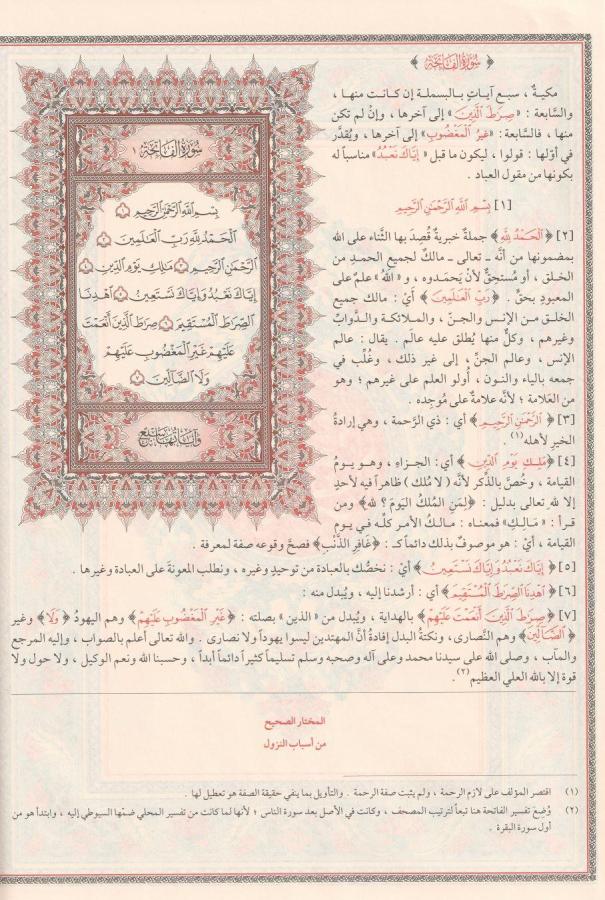 ﴿ سُورَةُ الْفَاتِحَةِ ﴾
مكيةٌ ، سبع آياتٍ بالبسملة إن كانت منها ،
والسَّابعة : «صِرَٰطَ ٱلَّذِينَ» إلى آخرها ، وإنْ لم تكن
منها ، فالسَّابعة: «غَيْرِ ٱلْمَغْضُوبِ» إلى آخرها ، ويُقدَّر
في أوّلها : قولوا ، ليكون ما قبل «إِيَّاكَ نَعْبُدُ» مناسباً له
بكونها من مقول العباد .
[١] بِسْمِ ٱللَّهِ ٱلرَّحْمَٰنِ ٱلرَّحِيمِ
[٢] ﴿ٱلْحَمْدُ لِلَّهِ﴾ جملةٌ خبريةٌ قُصِدَ بها الثَّناء على الله
بمضمونها من أنَّه ـ تعالى ـ مالكٌ لجميع الحمدِ من
الخلق ، أو مُستحِقٌّ لأنْ يَحمَدوه ، و«اللهُ» علمٌ على
المعبودِ بحقّ . ﴿رَبِّ ٱلْعَٰلَمِينَ﴾ أيْ : مالك جميع
الخلق من الإنس والجنّ ، والملائكة والدَّوابّ
وغيرهم ، وكلٌّ منها يُطلق عليه عالَم . يقال : عالم
الإنس ، وعالم الجنّ ، إلى غير ذلك ، وغُلِّب في
جمعه بالياء والنون ، أُولو العلم على غيرهم ؛ وهو
من العَلامة ؛ لأنَّه علامةٌ على مُوجِده .
[٣] ﴿ٱلرَّحْمَٰنِ ٱلرَّحِيمِ﴾ أي : ذي الرَّحمة ، وهي إرادةُ
الخير لأهله(١).
[٤] ﴿مَٰلِكِ يَوْمِ ٱلدِّينِ﴾ أي : الجزاءِ ، وهو يومُ
القيامة ، وخُصَّ بالذِّكر لأنَّه ( لا مُلك ) ظاهراً فيه لأحدٍ
إلا لله تعالى بدليل : ﴿لِمَنِ المُلكُ اليَومَ؟ لله﴾ ومن
قرأ : «مَالِكِ» فمعناه : مالكُ الأمر كلِّه في يوم
القيامة ، أيْ : هو موصوفٌ بذلك دائماً كـ : ﴿غَافِرِ الذَّنْبِ﴾ فصحَّ وقوعه صفة لمعرفة .
[٥] ﴿إِيَّاكَ نَعْبُدُ وَإِيَّاكَ نَسْتَعِينُ﴾ أيْ : نخصُّك بالعبادة من توحيدٍ وغيره ، ونطلب المعونةَ على العبادة وغيرها .
[٦] ﴿ٱهْدِنَا ٱلصِّرَٰطَ ٱلْمُسْتَقِيمَ﴾ أي : أرشدنا إليه ، ويُبدل منه :
[٧] ﴿صِرَٰطَ ٱلَّذِينَ أَنْعَمْتَ عَلَيْهِمْ﴾ بالهداية ، ويُبدل من «الذين» بصلته : ﴿غَيْرِ ٱلْمَغْضُوبِ عَلَيْهِمْ﴾ وهم اليهودُ ﴿وَلَا﴾ وغير
﴿ٱلضَّآلِّينَ﴾ وهم النَّصارى ، ونكتةُ البدل إفادةُ أنَّ المهتدين ليسوا يهوداً ولا نصارى . والله تعالى أعلم بالصواب ، وإليه المرجع
والمآب ، وصلى الله على سيدنا محمد وعلى آله وصحبه وسلم تسليماً كثيراً دائماً أبداً ، وحسبنا الله ونعم الوكيل ، ولا حول ولا
قوة إلا بالله العلي العظيم(٢).
سُورَةُ الْفَاتِحَةِ ١
بِسْمِ ٱللَّهِ ٱلرَّحْمَٰنِ ٱلرَّحِيمِ ١
ٱلْحَمْدُ لِلَّهِ رَبِّ ٱلْعَٰلَمِينَ ٢
ٱلرَّحْمَٰنِ ٱلرَّحِيمِ ٣ مَٰلِكِ يَوْمِ ٱلدِّينِ ٤
إِيَّاكَ نَعْبُدُ وَإِيَّاكَ نَسْتَعِينُ ٥ ٱهْدِنَا
ٱلصِّرَٰطَ ٱلْمُسْتَقِيمَ ٦ صِرَٰطَ ٱلَّذِينَ أَنْعَمْتَ
عَلَيْهِمْ غَيْرِ ٱلْمَغْضُوبِ عَلَيْهِمْ
وَلَا ٱلضَّآلِّينَ ٧
وَآيَاتُهَا سَبْعٌ
المختار الصحيح
من أسباب النزول
(١) اقتصر المؤلف على لازم الرحمة ، ولم يثبت صفة الرحمة . والتأويل بما ينفي حقيقة الصفة هو تعطيل لها .
(٢) وُضِعَ تفسير الفاتحة هنا تبعاً لترتيب المصحف ، وكانت في الأصل بعد سورة الناس ؛ لأنها لما كانت من تفسير المحلي ضمّها السيوطي إليه ، وابتدأ هو من
أول سورة البقرة .